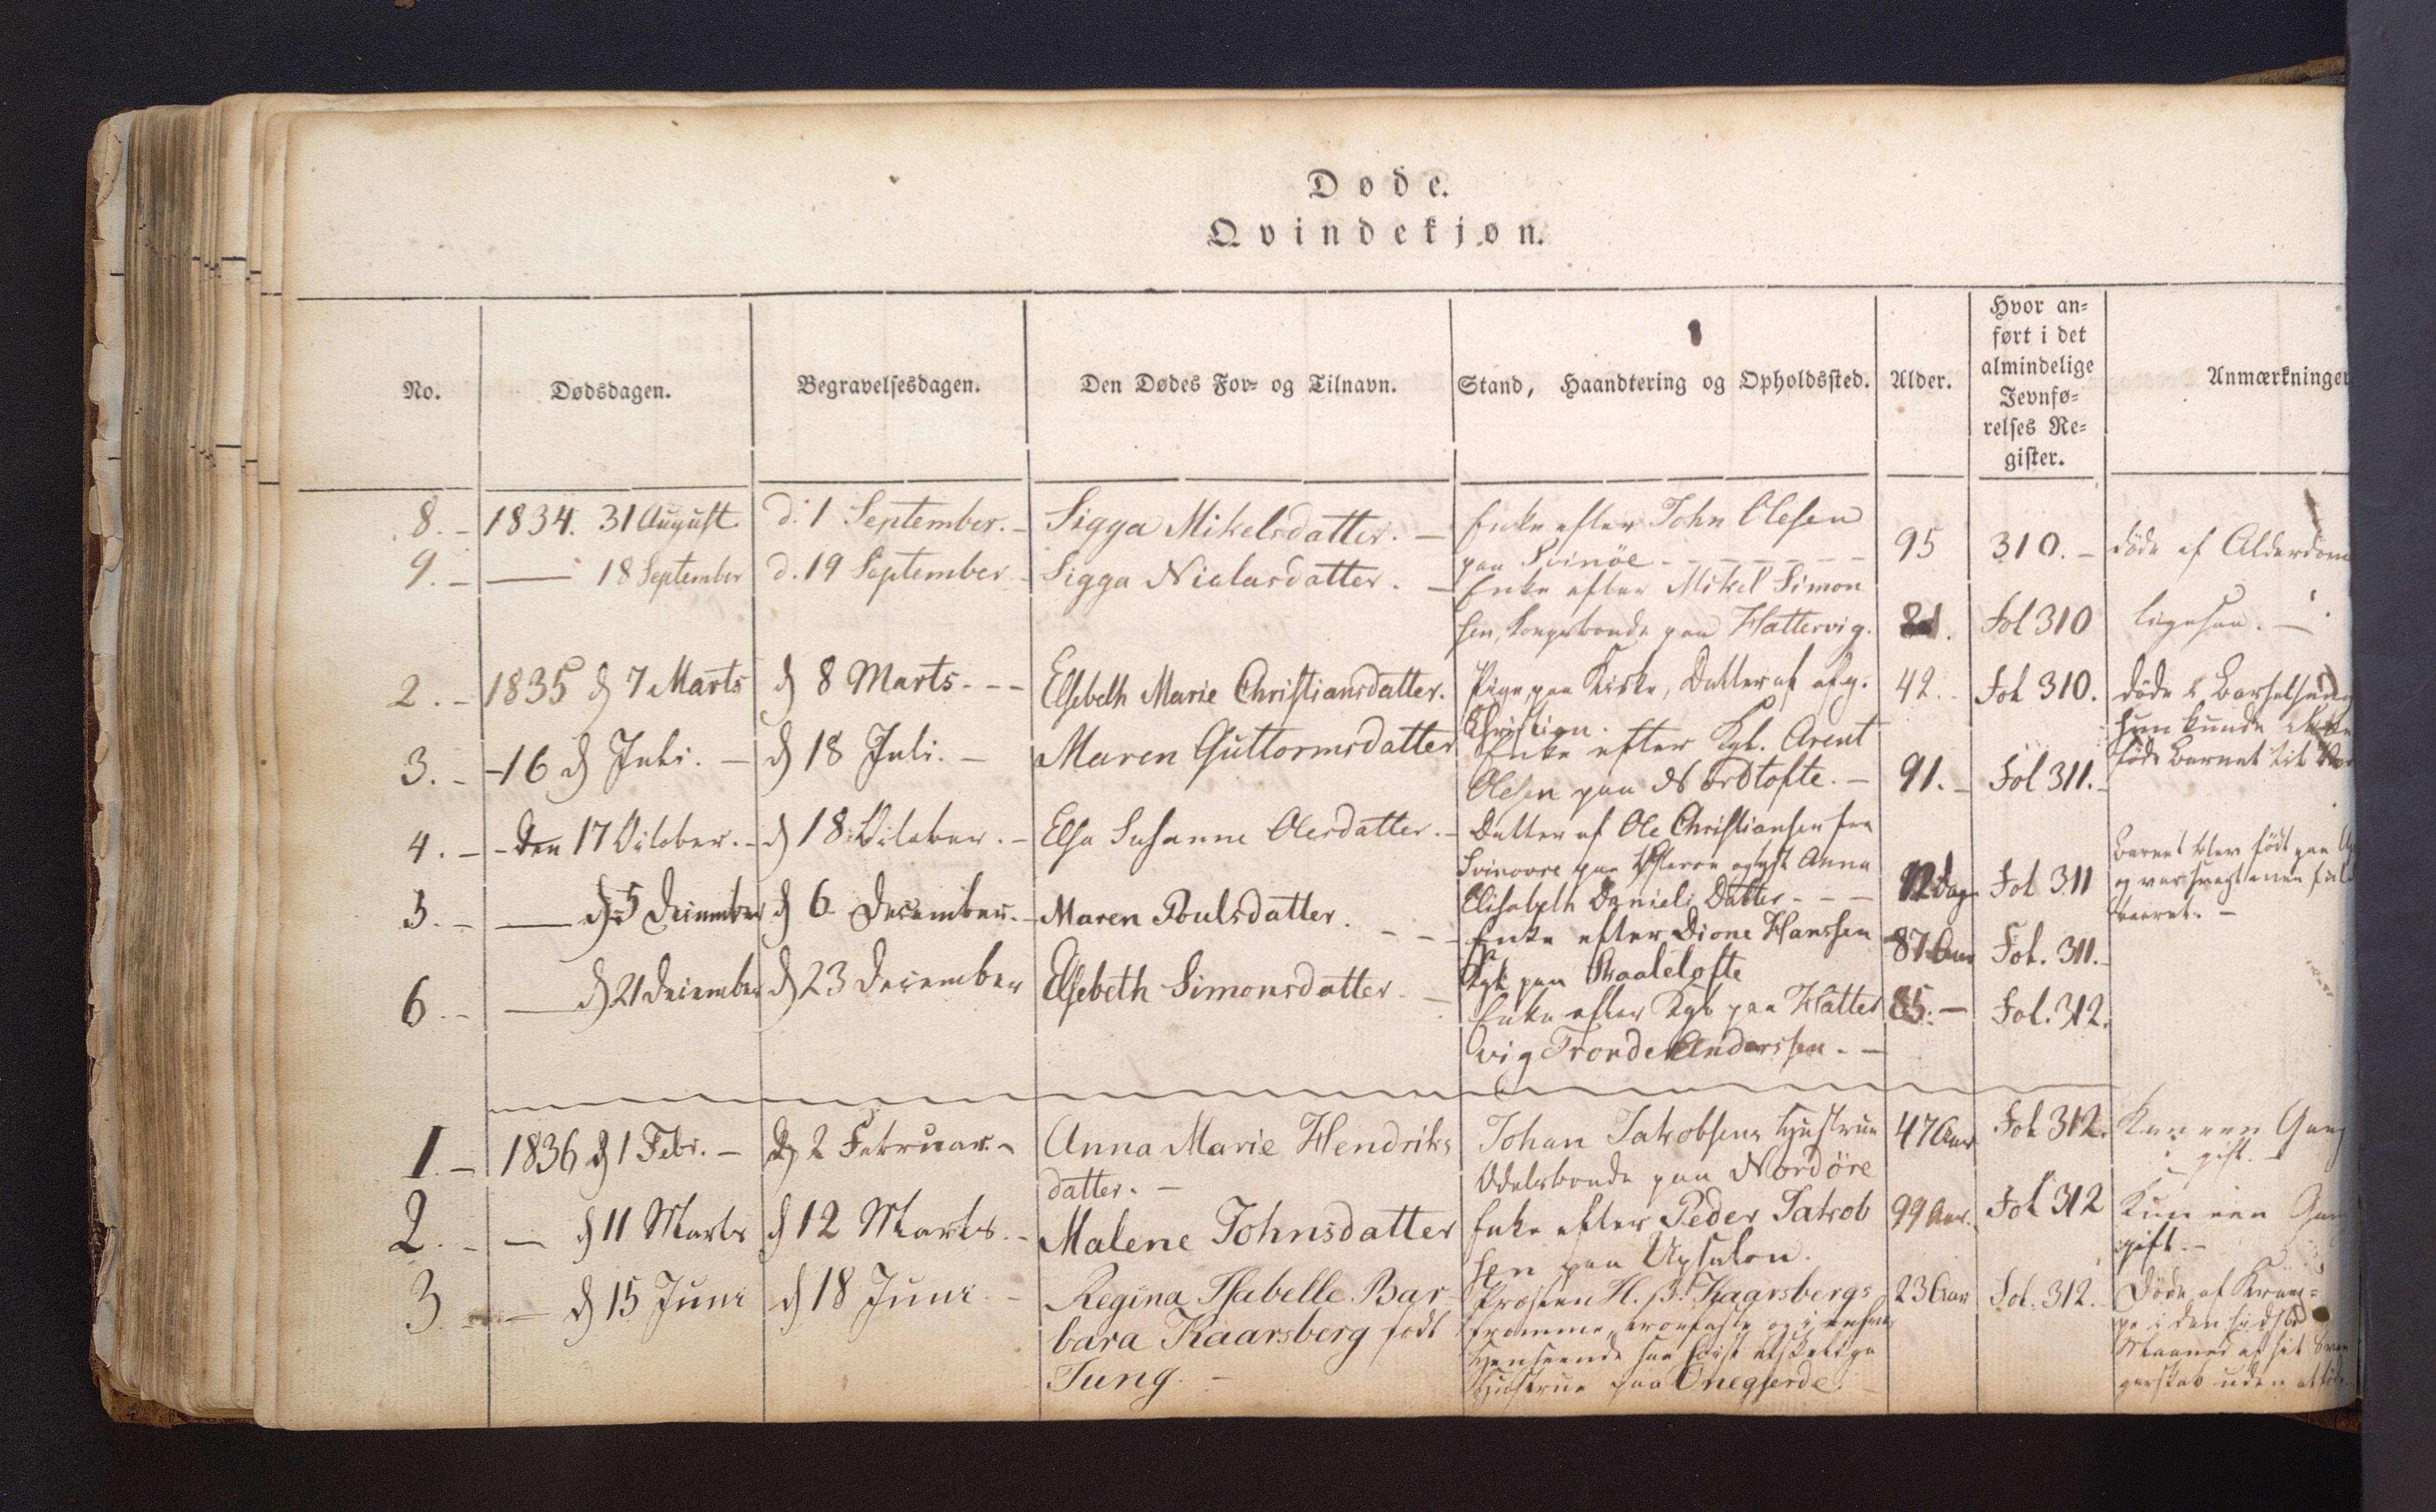 Døde.
Qvindekjøn.
No. Dødsdagen. Begravelsesdagen. Den Dødes For- og Tilnavn. Stand, Haandtering og Opholdssted. Alder. Hvor an=
ført i det
almindelige
Jevnfø=
relses Re=
gister. Anmærkninger
8. - 1834. 31 August. d. 1 September. - Sigga Mikelsdatter. - Enke efter John Olesen
paa Svinöe - - - 95 310. - döde af Alderdom
9. - — 18 September d. 19 September - Sigga Nialasdatter. - Enke efter Mikel Simon
sen, Kongsbonde paa Hattervig. 81. Fol 310 ligesaa. —
2. - 1835 d 7 Marts d 8 Marts. - - Elsebeth Marie Christiansdatter. Pige paa Kirke, Datter af afg.
Christian. 42. - Fol 310. döde i Barselseng
hun kunde
föde Barnet til
3. - - 16 d Juli. - d 18 Juli. - Maren Guttormsdatter Enke efter Kgb. Arent
Olesen paa Nordtofte. - 91. - Fol 311. -
4. - - Den 17 October. - d 18 October. - Elsa Susanne Olesdatter. - Datter af Ole Christiansen fra
Svinoere paa og Anna
Elisabeth Daniels Datter - - - 12 Dage Fol 311 Barnet blev födt paa
og var
5. - — d 5 December d 6 December. - Maren Poulsdatter. - - - Enke efter Dione Hanssen
Kgb paa Praaletofte 87 Aar Fol. 311. -
6 - — d 21 December d 23 December Elsebeth Simonsdatter - - Enke efter Kgb paa Hatter
vig Tronde Anderssen. - 85. - Fol. 312.
1. - 1836 d 1 Febr. - d 2 Februar. - Anna Marie Hendriks
datter. - Johan Jakobsens Hustrue
Odelsbonde paa Nordöre 47 Aar Fol 312. Kun een Gang
gift. -
2. - — d 11 Marts d 12 Marts. - Malene Johnsdatter Enke efter Peder Jakob
sen paa Upsalon. 99 Aar. Fol 312 Kun een Gang
gift. -
3 - — d 15 Juni d 18 Juni. - Regina Isabelle Bar-
bara Kaarsberg födt
Jung. - Prosten H. Kaarsbergs
fromme, og i
Henseende saa elskelige
Hustrue paa Onegjerde. 23 Aar Fol. 312. - Döde af Kram=
pe i den sidste
Maaned af sit
gerskab uden at